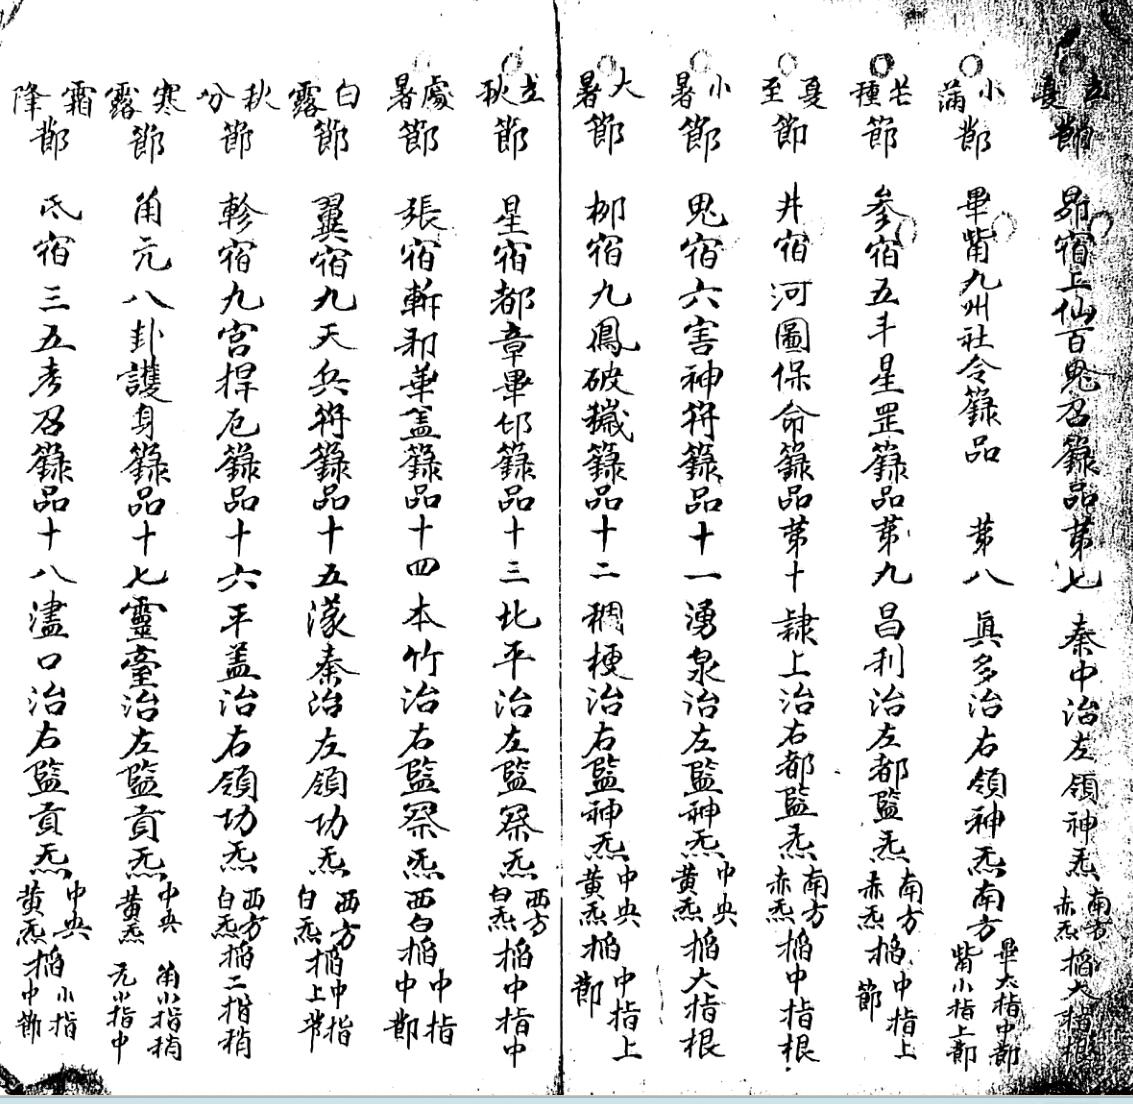 立夏節　昴宿上仙百鬼召籙品第七　秦中治左領神炁南方赤炁掐大指根
小滿節　畢觜九州社令籙品　第八　真多治右領神炁南方畢大指中節觜小指上節
芒種節　參宿五斗星罡籙品第九　昌利治左都監炁南方赤炁掐中指上節
夏至節　井宿河圖保命籙品第十　隸上治右都監炁南方赤炁掐中指根
小暑節　鬼宿六害神符籙品十一　湧泉治左監神炁中央黃炁掐大指根
大暑節　柳宿九鳳破穢籙品十二　稠梗治右監神炁中央黃炁掐中指上節
立秋節　星宿都章畢印籙品十三　北平治左監察炁西方白炁掐中指中
處暑節　張宿斬邪華盖籙品十四　本竹治右監察炁西白掐中指中節
白露節　翼宿九天兵符籙品十五　濛秦治左領功炁西方白炁掐中指上節
秋分節　軫宿九宮捍厄籙品十六　平盖治右領功炁西方白炁掐二指稍
寒露節　角亢八卦護身籙品十七　靈臺治左監貢炁中央黃炁角小指稍亢小指中
霜降節　氐宿三五考召籙品十八　濜口治右監貢炁中央黃炁掐小指中節